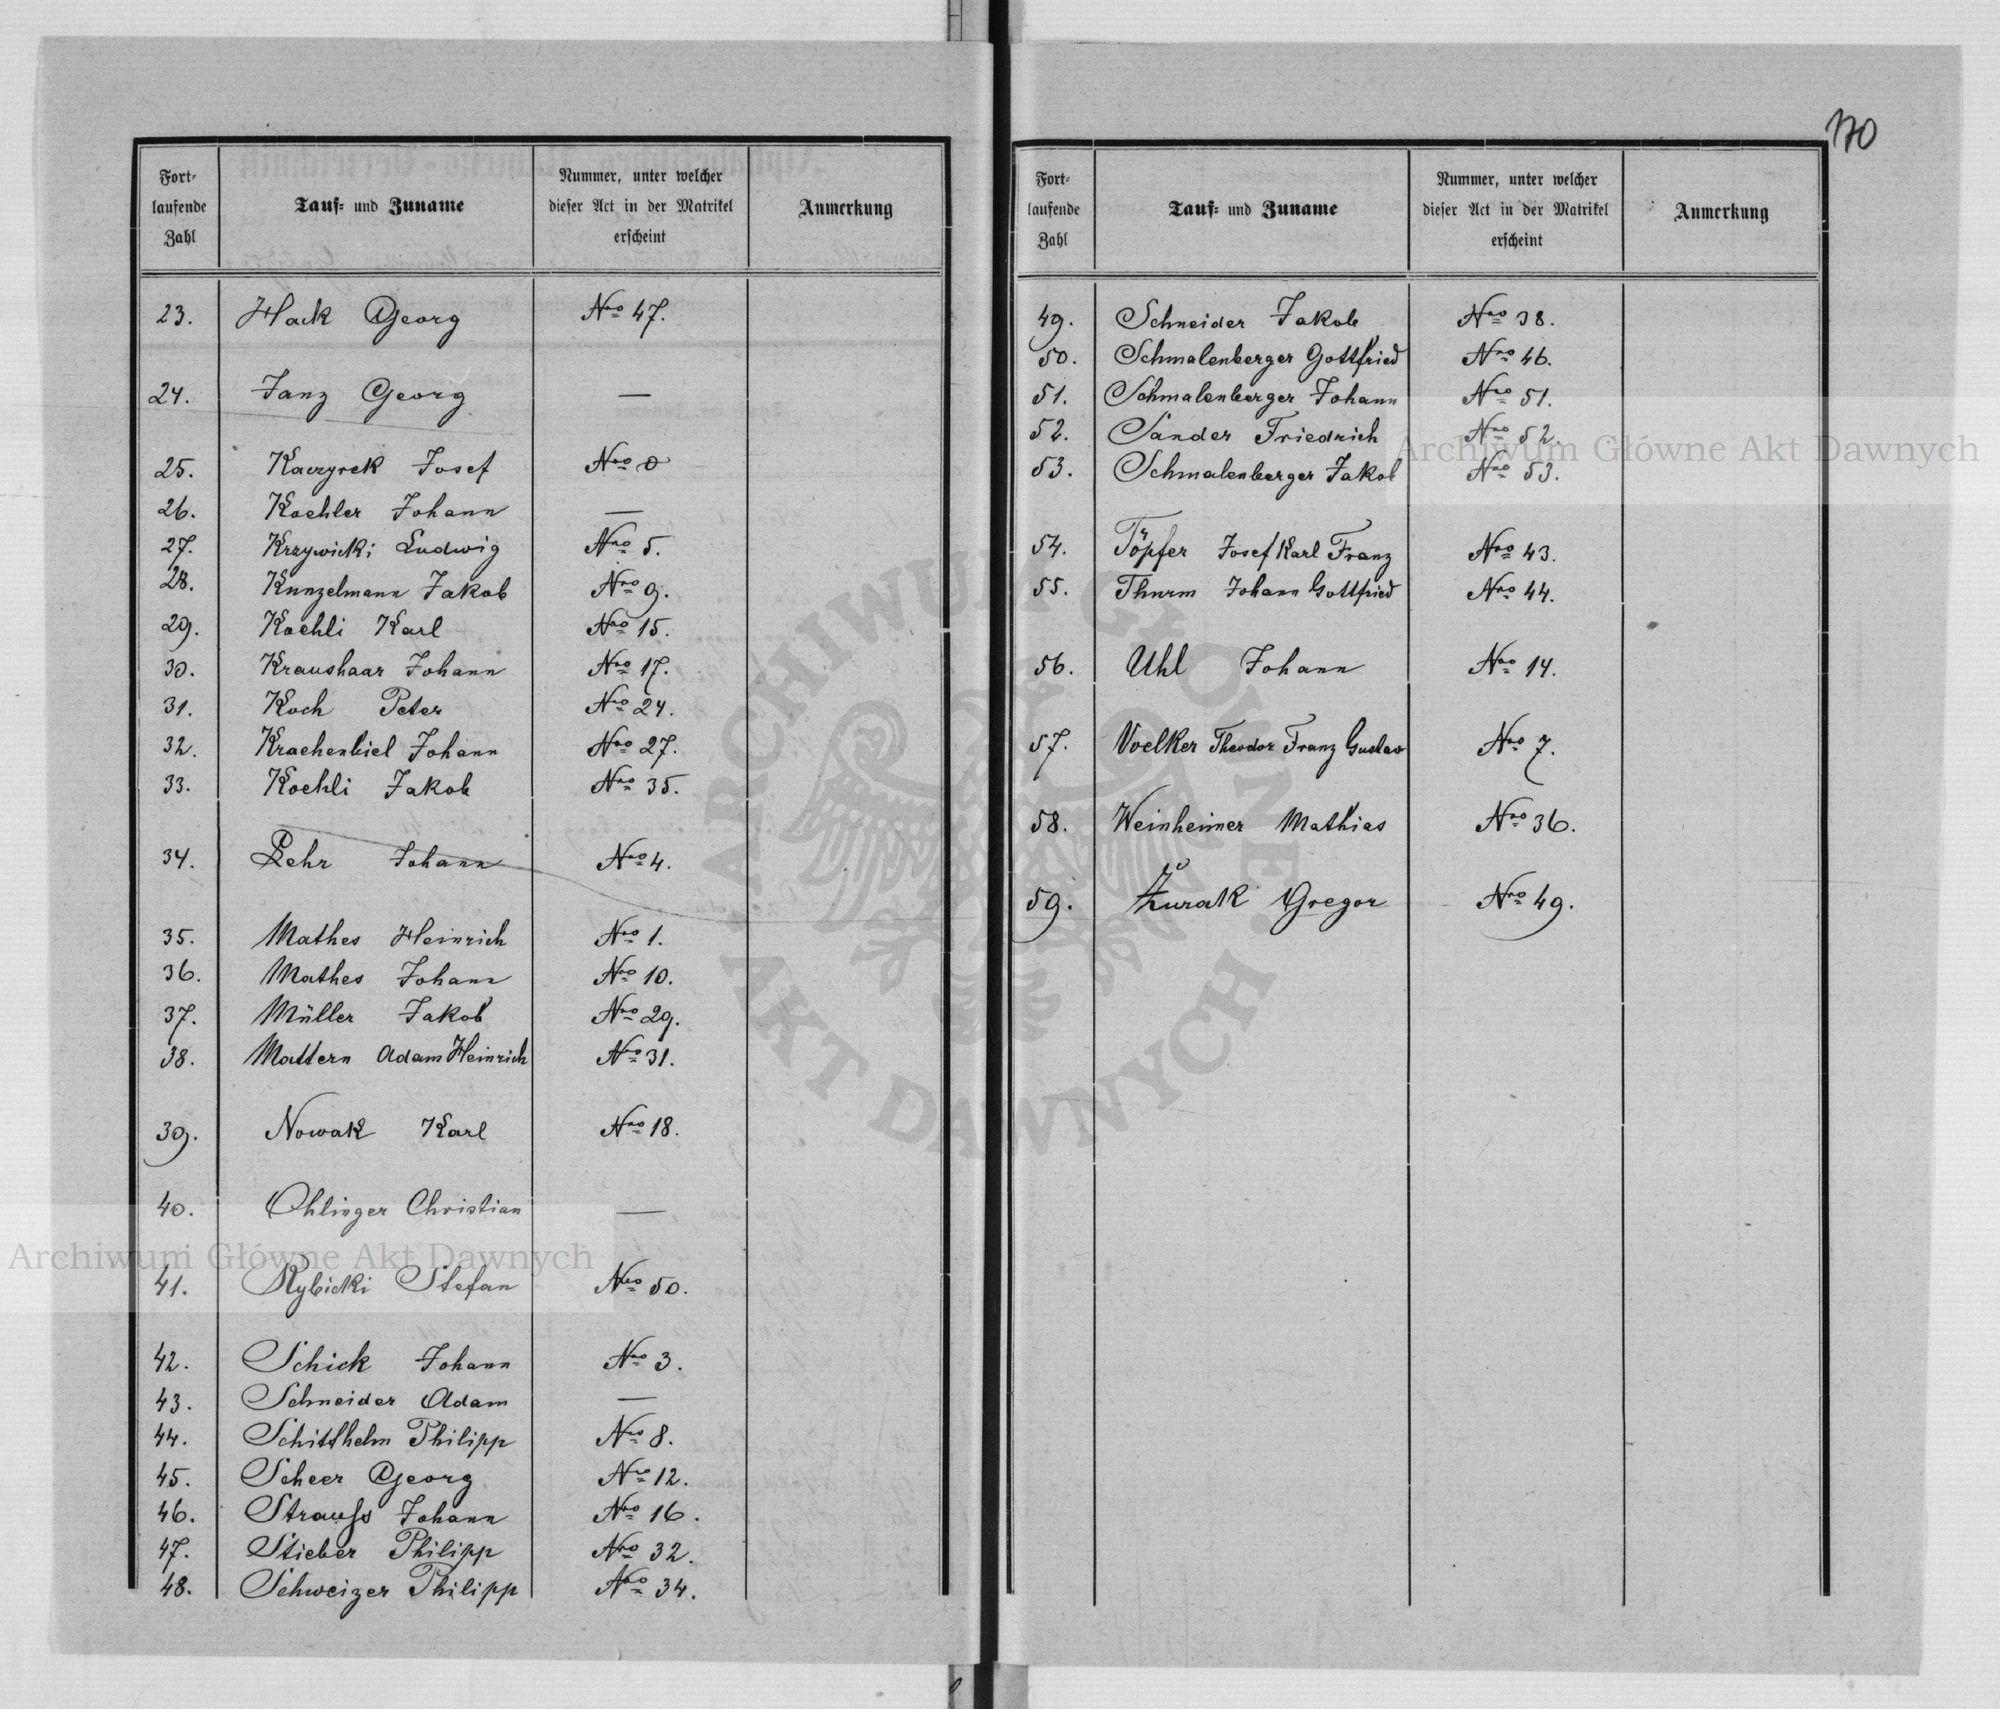 170
Fort-
laufende
Zahl
Tauf- und Zuname
Nummer, unter welcher
dieser Act in der Matrikel
erscheint
Anmerkung
23. Hack Georg Nro 47.
24. Janz Georg —
25. Kaczyrek Josef Nro 0
26. Koehler Johann —
27. Krzywicki Ludwig Nro 5.
28. Kunzelmann Jakob Nro 9.
29. Koehli Karl Nro 15.
30. Kraushaar Johann Nro 17.
31. Koch Peter Nro 24.
32. Kraehenbiel Johann Nro 27.
33. Koehli Jakob Nro 35.
34. Lehr Johann Nro 4.
35. Mathes Heinrich Nro 1.
36. Mathes Johann Nro 10.
37. Müller Jakob Nro 29.
38. Mattern Adam Heinrich Nro 31.
39. Nowak Karl Nro 18.
40. Ohlinger Christian —
41. Rybicki Stefan Nro 50.
42. Schick Johann Nro 3.
43. Schneider Adam —
44. Schitthelm Philipp Nro 8.
45. Scheer Georg Nro 12.
46. Strauss Johann Nro 16.
47. Stieber Philipp Nro 32.
48. Schweizer Philipp Nro 34.
Fort-
laufende
Zahl
Tauf- und Zuname
Nummer, unter welcher
dieser Act in der Matrikel
erscheint
Anmerkung
49. Schneider Jakob Nro 38.
50. Schmalenberger Gottfried Nro 46.
51. Schmalenberger Johann Nro 51.
52. Sander Friedrich Nro 52.
53. Schmalenberger Jakob Nro 53.
54. Töpfer Josef Karl Franz Nro 43.
55. Thurm Johann Gottfried Nro 44.
56. Uhl Johann Nro 14.
57. Voelker Theodor Franz Gustav Nro 7.
58. Weinheimer Mathias Nro 36.
59. Żurak Gregor Nro 49.
Archiwum Główne Akt Dawnych
Archiwum Główne Akt Dawnych
ARCHIWUM GŁÓWNE AKT DAWNYCH